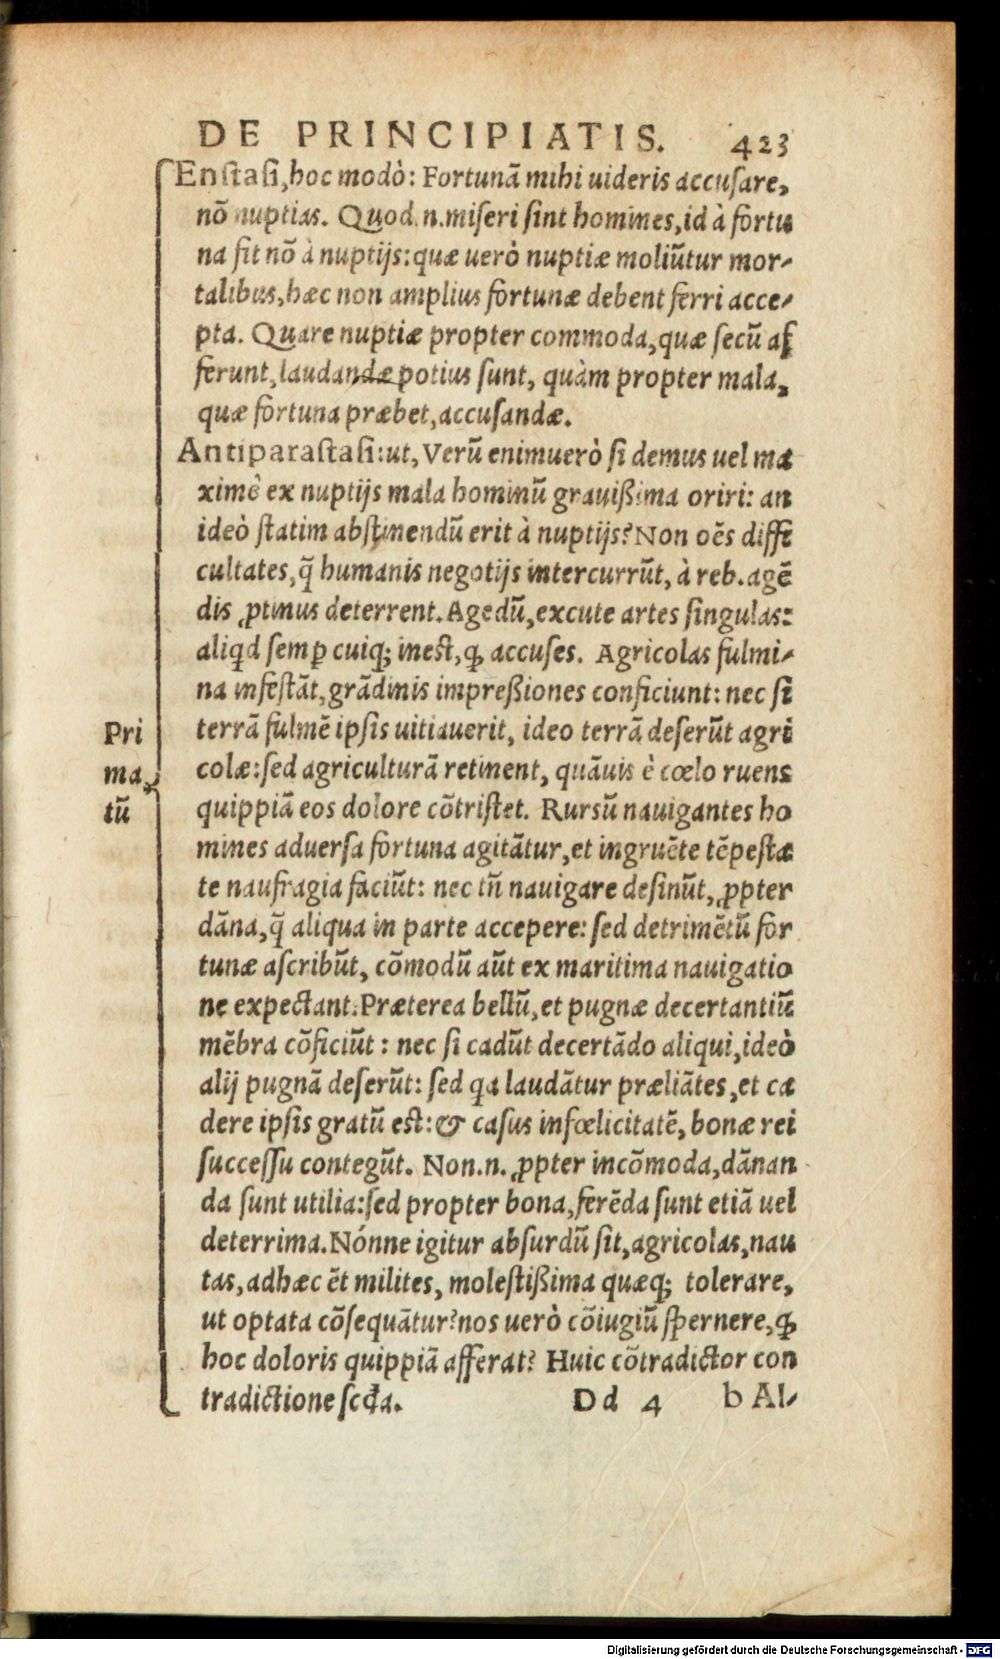 DE PRINCIPIATIS. 423
Enstasi, hoc modò: Fortunã mihi uideris accusare,
nõ nuptias. Quod. n. miseri sint homines, id à fortu
na fit nõ à nuptijs: quæ uerò nuptiæ moliũtur mor-
talibus, hæc non amplius fortunæ debent ferri acce-
pta. Quare nuptiæ propter commoda, quæ secũ af
ferunt, laudandæ potius sunt, quàm propter mala,
quæ fortuna præbet, accusandæ.
Antiparastasi: ut, Verũ enimuerò si demus uel ma
ximè ex nuptijs mala hominũ grauißima oriri: an
ideò statim abstinendũ erit à nuptijs? Non oẽs diffi
cultates, q̃ humanis negotijs intercurrũt, à reb. agẽ
dis ꝓtinus deterrent. Agedũ, excute artes singulas:
aliqd semꝑ cuiq; inest, ꝙ accuses. Agricolas fulmi-
na infestãt, grãdinis impreßiones conficiunt: nec si
Pri
ma
tũ
terrã fulmẽ ipsis uitiauerit, ideo terrã deserũt agri
colæ: sed agriculturã retinent, quãuis è cœlo ruens
quippiã eos dolore cõtristet. Rursũ nauigantes ho
mines aduersa fortuna agitãtur, et ingruẽte tẽpesta
te naufragia faciũt: nec tñ nauigare desinũt, ꝓpter
dãna, q̃ aliqua in parte accepere: sed detrimẽtũ for
tunæ ascribũt, cõmodũ aũt ex maritima nauigatio
ne expectant. Præterea bellũ, et pugnæ decertantiũ
mẽbra cõficiũt: nec si cadũt decertãdo aliqui, ideò
alij pugnã deserũt: sed qa laudãtur præliãtes, et ca
dere ipsis gratũ est: & casus infœlicitatẽ, bonæ rei
successu contegũt. Non. n. ꝓpter incõmoda, dãnan
da sunt utilia: sed propter bona, ferẽda sunt etiã uel
deterrima. Nónne igitur absurdũ sit, agricolas, nau
tas, adhæc ẽt milites, molestißima quæq; tolerare,
ut optata cõsequãtur? nos uerò cõiugiũ spernere, ꝙ
hoc doloris quippiã afferat? Huic cõtradictor con
tradictione scda. Dd 4 b Al-
Digitalisierung gefördert durch die Deutsche Forschungsgemeinschaft - DFG